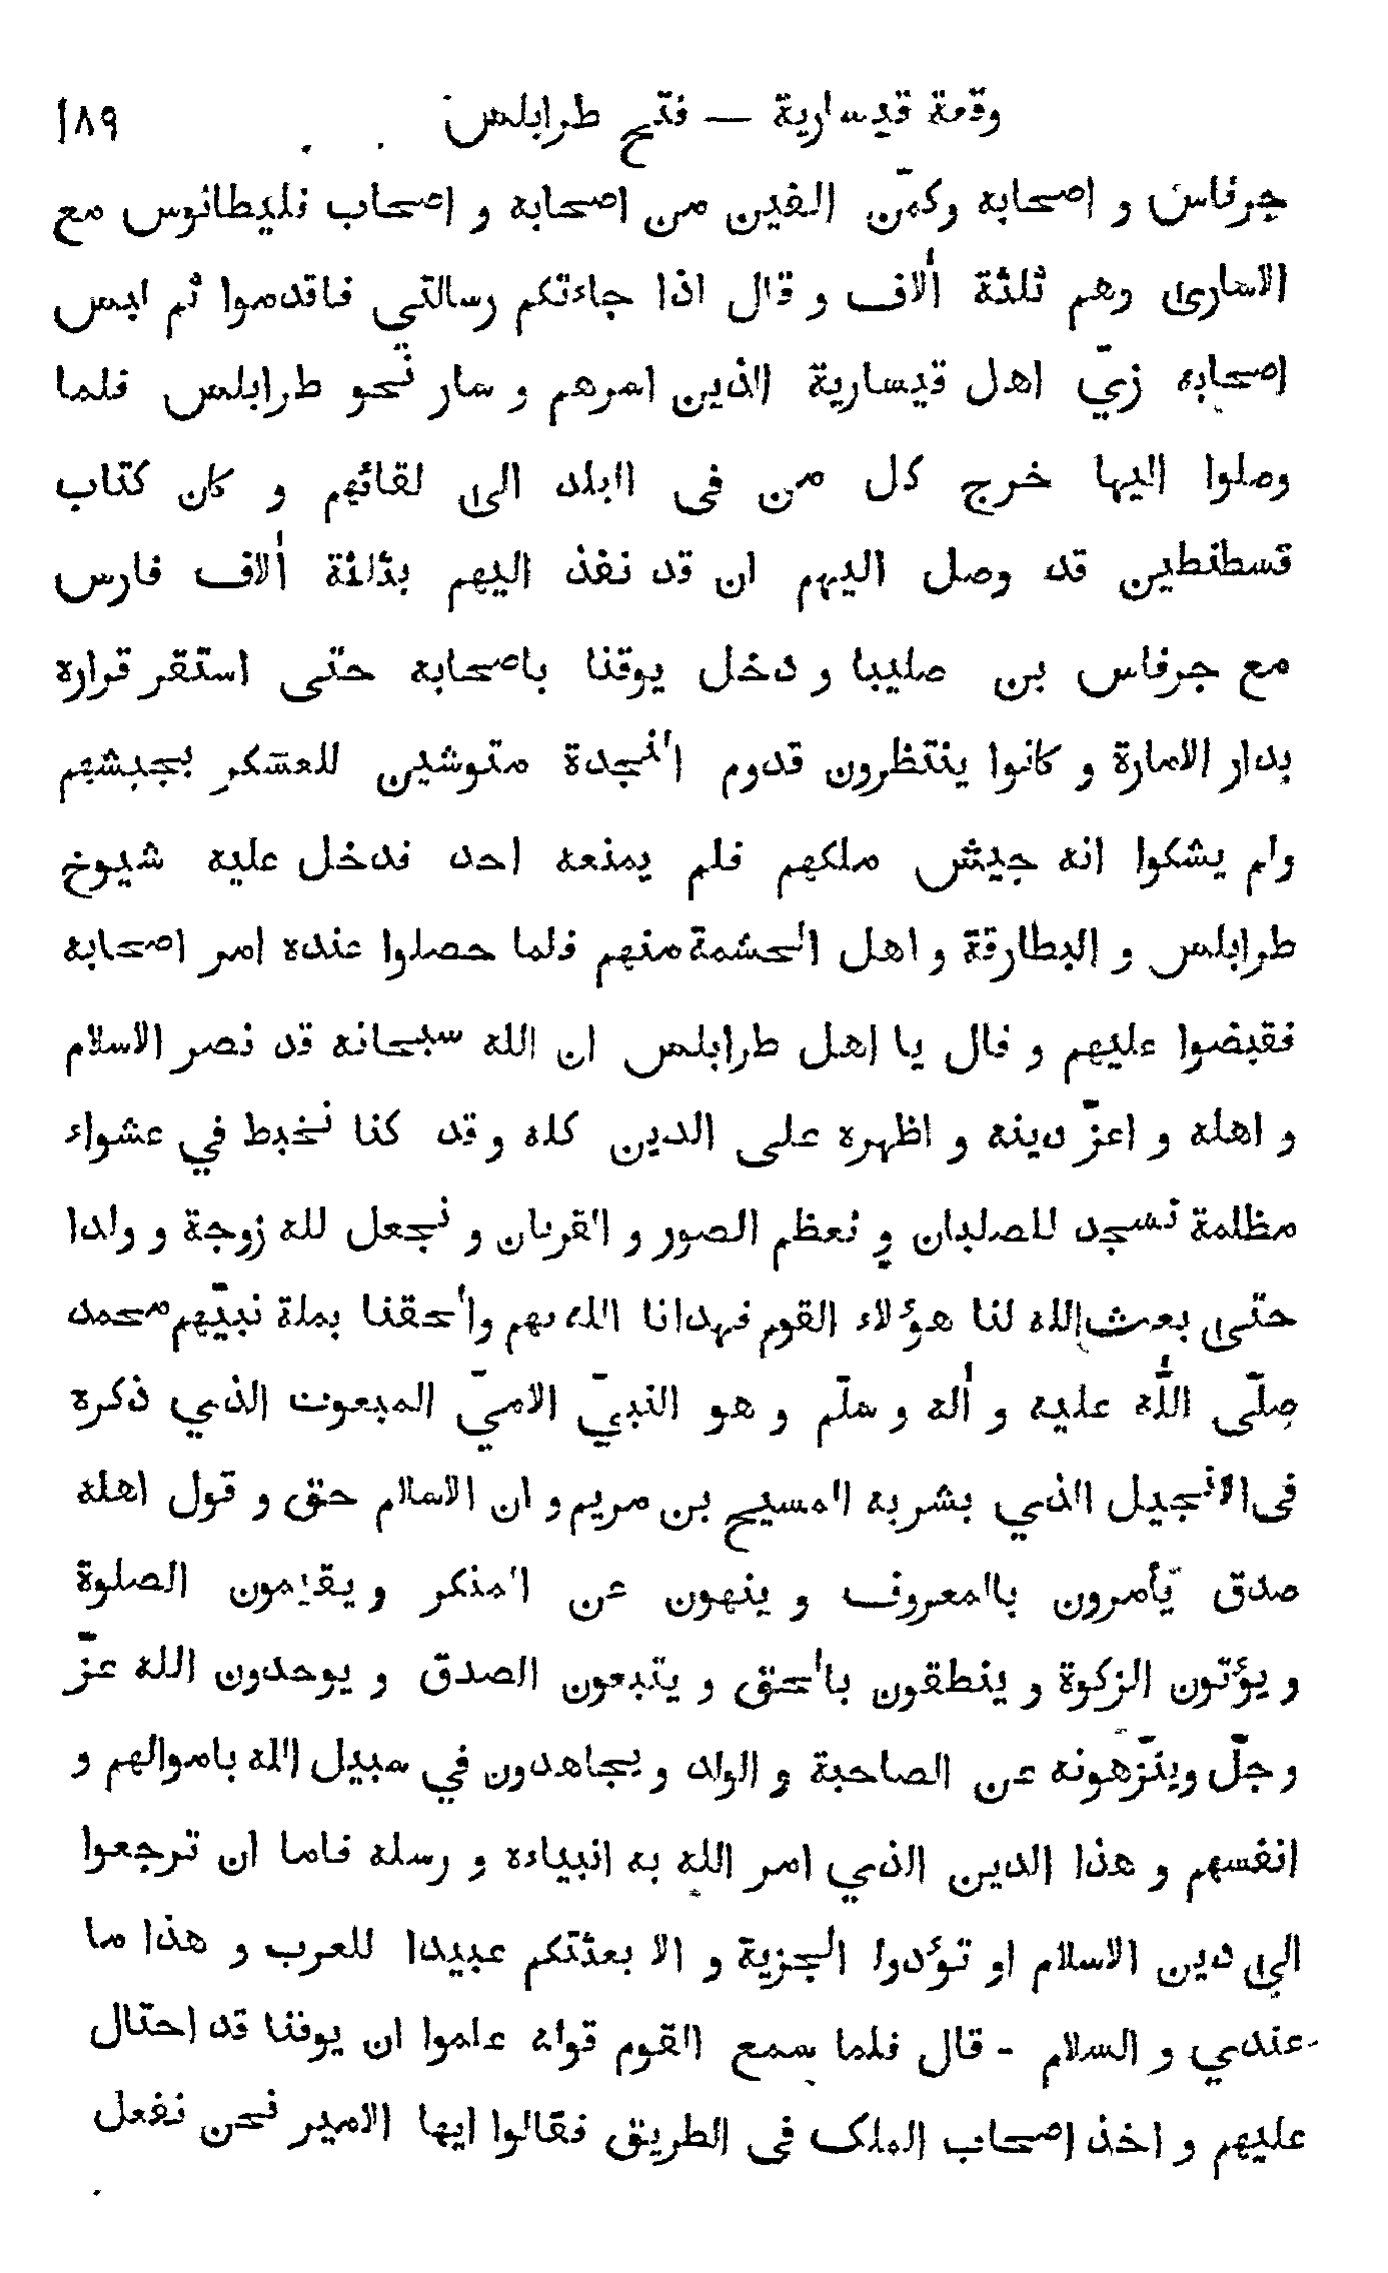 وقعة قيسارية — فتح طرابلس ١٨٩
جرفاس و اصحابه وكمّن الفين من اصحابه و اصحاب فليطانوس مع
الاسارى وهم ثلثة ألاف و قال اذا جاءتكم رسالتي فاقدموا ثم لبس
اصحابه زيّ اهل قيسارية الذين اسرهم و سار نحو طرابلس فلما
وصلوا اليها خرج كل من فى البلد الى لقائهم و كان كتاب
قسطنطين قد وصل اليهم ان قد نفذ اليهم بثلثة ألاف فارس
مع جرفاس بن صليبا و دخل يوقنا باصحابه حتى استقر قراره
بدار الامارة و كانوا ينتظرون قدوم النجدة متوشين للعسكر بجيشهم
ولم يشكوا انه جيش ملكهم فلم يمنعه احد فدخل عليه شيوخ
طرابلس و البطارقة و اهل الحشمة منهم فلما حصلوا عنده امر اصحابه
فقبضوا عليهم و قال يا اهل طرابلس ان الله سبحانه قد نصر الاسلام
و اهله و اعزّ دينه و اظهره على الدين كله و قد كنا نخبط في عشواء
مظلمة نسجد للصلبان و نعظم الصور و القربان و نجعل لله زوجة و ولدا
حتى بعث الله لنا هؤلاء القوم فهدانا الله بهم وألحقنا بملة نبيّهم محمد
صلّى اللّٰه عليه و أله و سلّم و هو النبيّ الاميّ المبعوث الذي ذكره
فى الانجيل الذي بشربه المسيح بن مريم و ان الاسلام حق و قول اهله
صدق يأمرون بالمعروف و ينهون عن المنكر و يقيمون الصلوة
و يؤتون الزكوة و ينطقون بالحق و يتبعون الصدق و يوحدون الله عزّ
و جلّ وينزّهونه عن الصاحبة و الولد و يجاهدون في سبيل الله باموالهم و
انفسهم و هذا الدين الذي امر الله به انبياءه و رسله فاما ان ترجعوا
الى دين الاسلام او تؤدوا الجزية و الا بعثتكم عبيدا للعرب و هذا ما
عندي و السلام - قال فلما سمع القوم قوله علموا ان يوقنا قد احتال
عليهم و اخذ اصحاب الملك فى الطريق فقالوا ايها الامير نحن نفعل